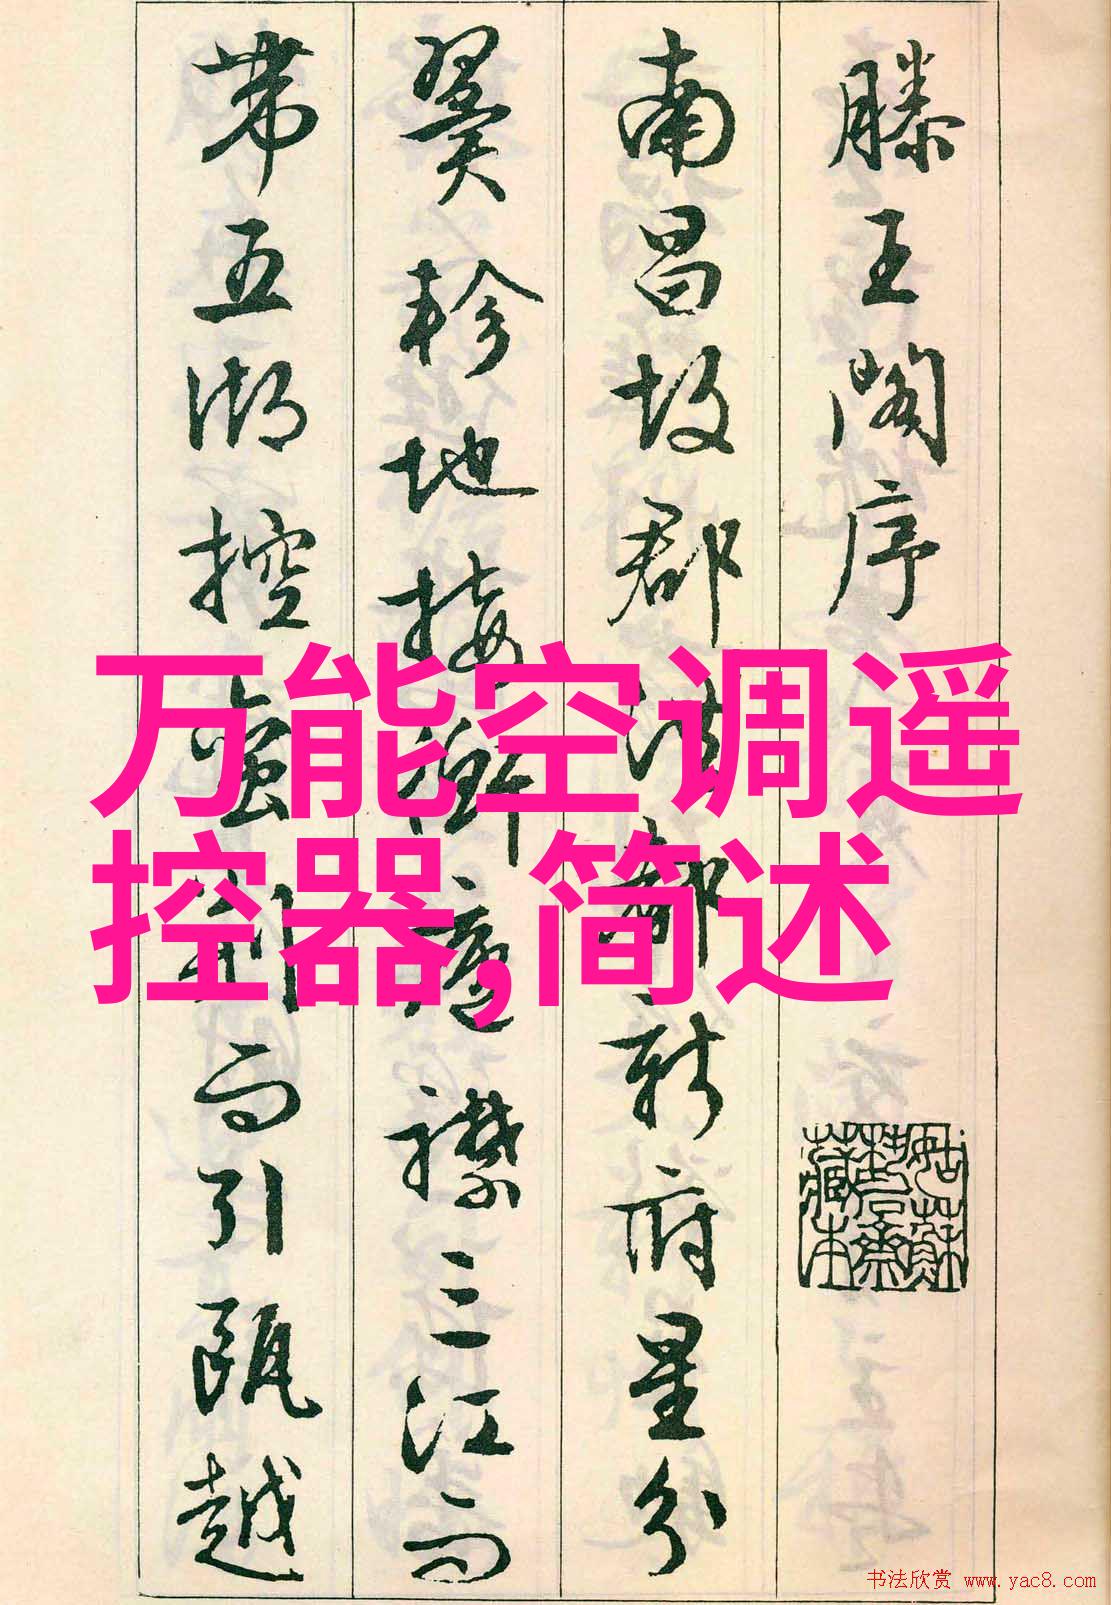 滕王阁序
南昌故郡洪都新府星分
翼轸地接衡庐襟三江而
带五湖控蛮荆而引瓯越
万能空调遥
控器,简述
姑苏
藏本
书法欣赏 www.yac8.com